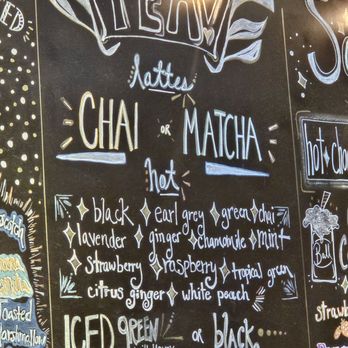 TEA
lattes
CHAI or MATCHA
hot
black earl grey green chai
lavender ginger chamomile mint
strawberry raspberry tropical green
citrus ginger white peach
ICED green or black
hot cho
Toasted
Marshmallow
strawbe